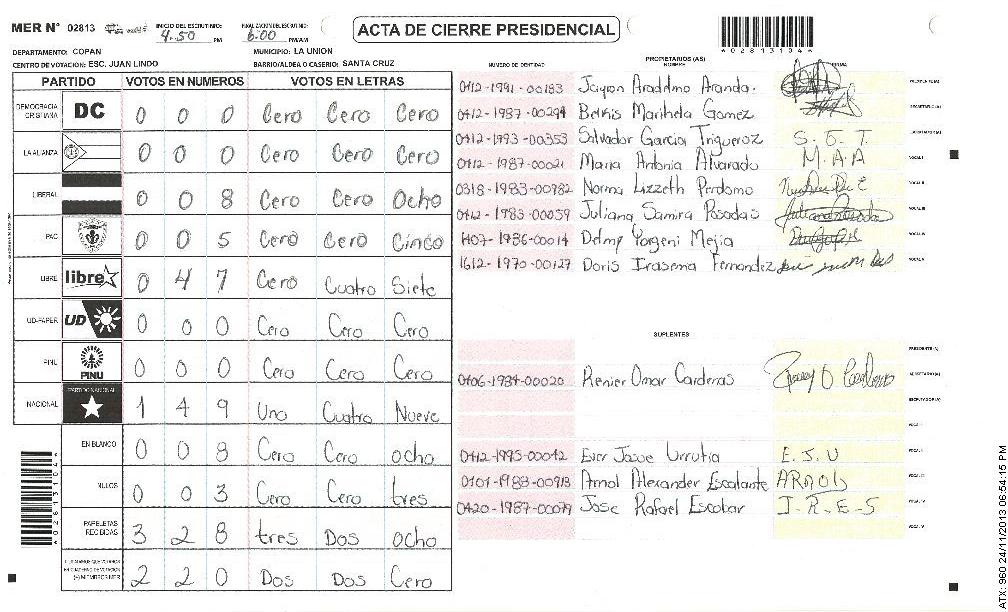 MER N° 02813 INICIO DEL ESCRUTINIO: 4:50 PM FINALIZACION DEL ESCRUTINIO: 6:00 PM/AM
ACTA DE CIERRE PRESIDENCIAL
*02813104*
DEPARTAMENTO: COPAN MUNICIPIO: LA UNION
CENTRO DE VOTACION: ESC. JUAN LINDO BARRIO/ALDEA O CASERIO: SANTA CRUZ
PARTIDO VOTOS EN NUMEROS VOTOS EN LETRAS
DEMOCRACIA CRISTIANA DC 0 0 0 Cero Cero Cero
LA ALIANZA 0 0 0 Cero Cero Cero
LIBERAL 0 0 8 Cero Cero Ocho
PAC 0 0 5 Cero Cero Cinco
LIBRE libre 0 4 7 Cero Cuatro Siete
UD-FAPER UD 0 0 0 Cero Cero Cero
PINU PINU 0 0 0 Cero Cero Cero
NACIONAL PARTIDO NACIONAL 1 4 9 Uno Cuatro Nueve
EN BLANCO 0 0 8 Cero Cero ocho
NULOS 0 0 3 Cero Cero tres
PAPELETAS RECIBIDAS 3 2 8 tres Dos ocho
CIUDADANOS QUE VOTARON EN CUADERNO DE VOTACION (+) MIEMBROS MER 2 2 0 Dos Dos Cero
PROPIETARIOS (AS)
NUMERO DE IDENTIDAD NOMBRE FIRMA
0412-1991-00183 Aranda. PRESIDENTE(A)
0412-1987-00294 Gomez SECRETARIO(A)
0412-1993-00353 Salvador Garcia Trigueroz S.G.T. ESCRUTADOR(A)
0412-1987-00021 Maria Antonia Alvarado M.A.A VOCAL I
0318-1983-00782 Norma Lizzeth Perdomo VOCAL II
0412-1983-00059 Juliana Samira Posadas VOCAL III
1407-1986-00014 Yorgeni Mejia VOCAL IV
1612-1970-00127 Doris Irasema Fernandez VOCAL V
SUPLENTES
PRESIDENTE(A)
0406-1984-00020 Renier Omar Carderas SECRETARIO(A)
ESCRUTADOR(A)
VOCAL I
0412-1995-00042 Ever Josue Urrutia E.J.U VOCAL II
0101-1988-00913 Arnol Alexander Escalante ARNOL VOCAL III
0420-1987-00079 Jose Rafael Escobar J-R-E-S VOCAL IV
VOCAL V
ATX: 960 24/11/2013 06:54:15 PM